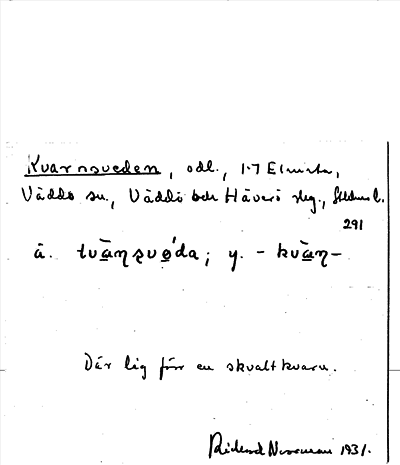 Kvarnsveden, odl., 1-7 Elmsta,
Väddö sn., Väddö och Häverö slg., Sthlms l.
291
ä. tvànsvǿda; y. - kvàn-
Där låg förr en skvaltkvarn.
Rickard Norrman 1931.